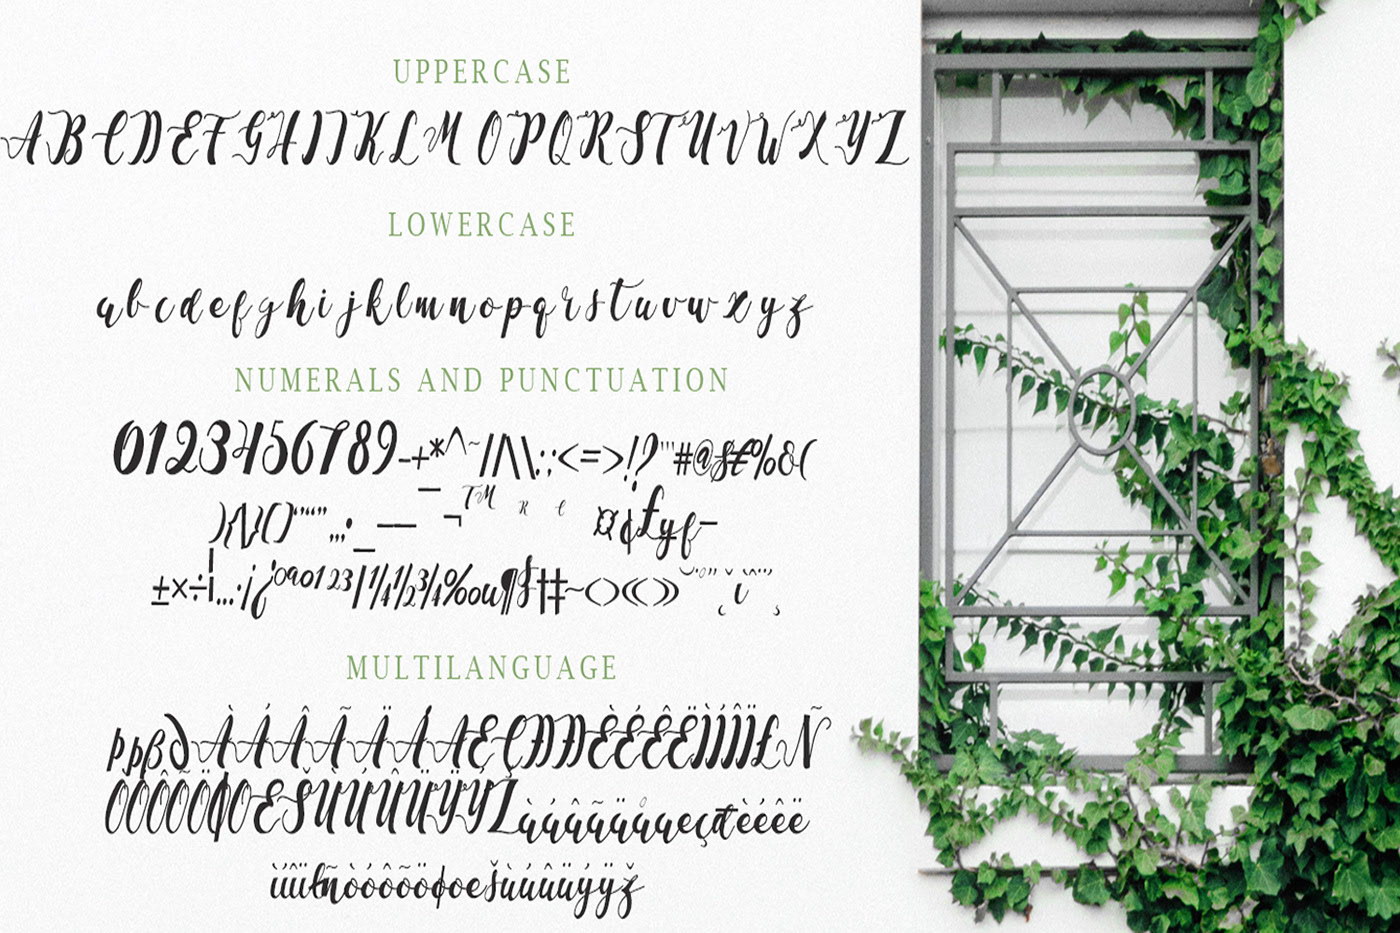 UPPERCASE
A B C D E F G H I J K L M O P Q R S T U V W X Y Z
LOWERCASE
a b c d e f g h i j k l m n o p q r s t u v w x y z
NUMERALS AND PUNCTUATION
0123456789-+*^~/|/\|\.:;<=>!?'"#@$€%&(
){\}[]''""‚„…•_–—¯¬™ ® © ¤¢£yƒ-
±×÷¦…·¡¿ºª⁰¹²³|¼½¾‰µ¶§†‡~‹›«»
MULTILANGUAGE
ÞþßðÀÁÂÃÄÅÆÇÐĐÈÉÊËÌÍÎÏŁÑ
ÒÓÔÕÖØŒŠÙÚÛÜÝŸŽàáâãäåæçđèéêë
ìíîïłñòóôõöøœšùúûüýÿž